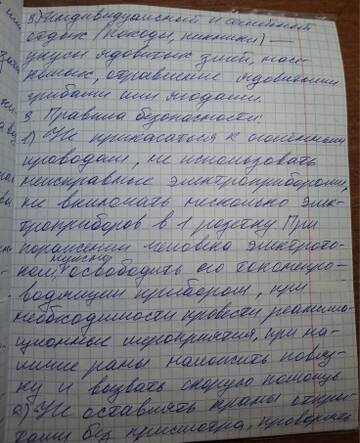 3) Индивидуальный и семейный
отдых (походы, пикники) –
укусы ядовитых змей, насе-
комых, отравление ядовитыми
грибами или ягодами.
3. Правила безопасности:
1) Не прикасаться к оголенным
проводам, не использовать
неисправные электроприборами,
не включать несколько элек-
троприборов в 1 розетку. При
поражении человека электрото-
ком нужно освободить его токонепро-
водящим прибором, при
необходимости провести реанима-
ционные мероприятия, при на-
личие раны наложить повяз-
ку и вызвать скорую помощь
2) Не оставлять краны откры-
тыми без присмотра, проверять